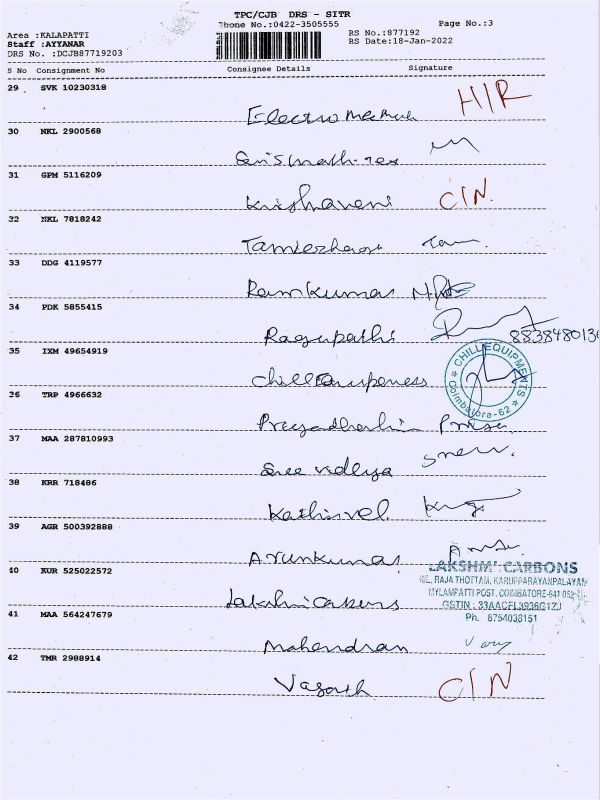 TPC/CJB DRS - SITR
Phone No.:0422-3505555
Page No.:3
Area :KALAPATTI
Staff :AYYANAR
DRS No. :DCJB87719203
RS No.:877192
RS Date:18-Jan-2022
S No Consignment No Consignee Details Signature
29 SVK 10230318
H/R
30 NKL 2900568
31 GPM 5116209
Krishaveni C/N.
32 NKL 7818242
33 DDG 4119577
Ramkumar
34 PDK 5855415
Ragupathi
35 IXM 49654919
CHILL EQUIPMENTS
Coimbatore-62
36 TRP 4966632
37 MAA 287810993
Sree vidhya
38 KRR 718486
Kathirvel
39 AGR 500392888
Arunkumar
40 KUR 525022572
LAKSHMI CARBONS
RAJA THOTTAM, KARUPPARAYANPALAYAM
MYLAMPATTI POST, COIMBATORE-641 062
GSTIN : 33AACFL3936G1ZJ
Ph. 8754038151
41 MAA 564247679
Mahendran
42 TMR 2988914
Vasanth C/N